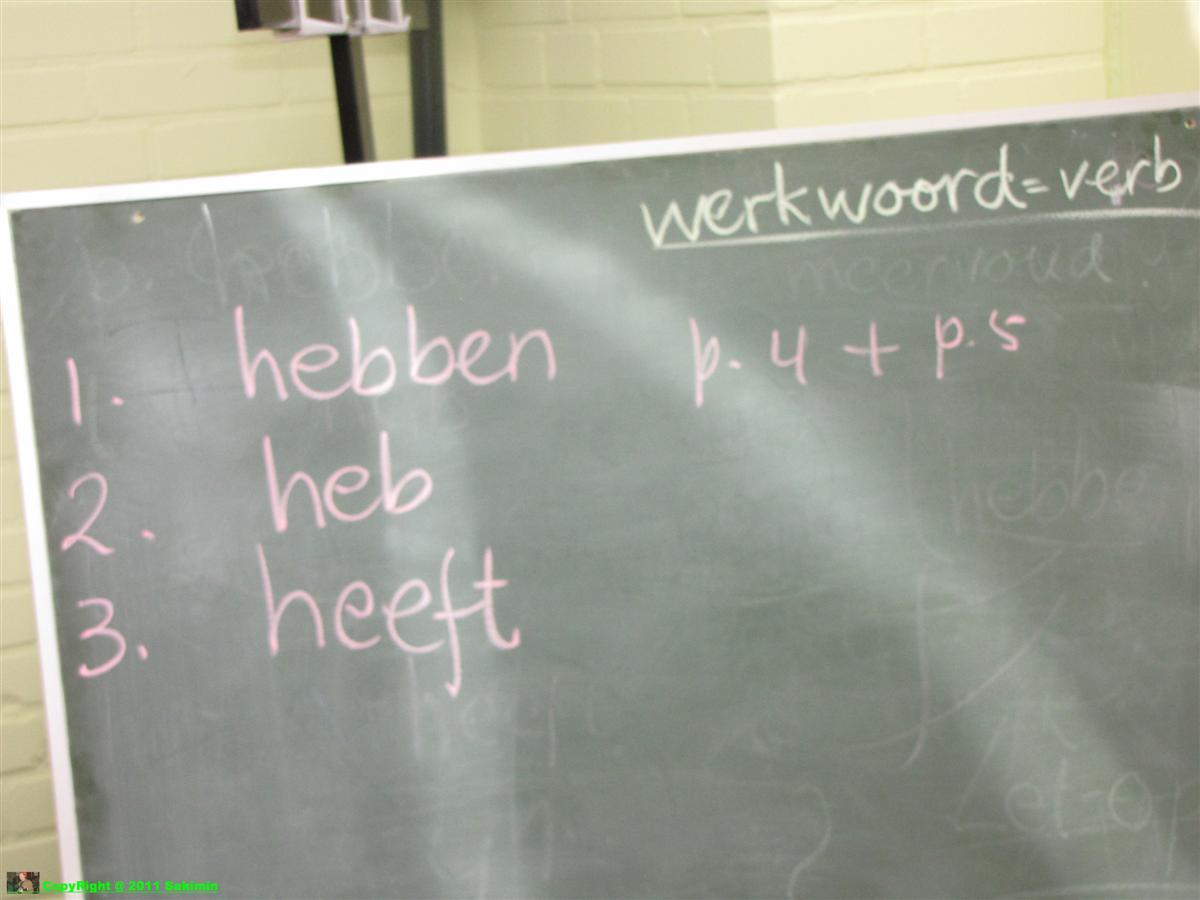 werkwoord = verb
meervoud
1. hebben p. 4 + p. 5
2. heb
3. heeft
CopyRight @ 2011 Sakimin